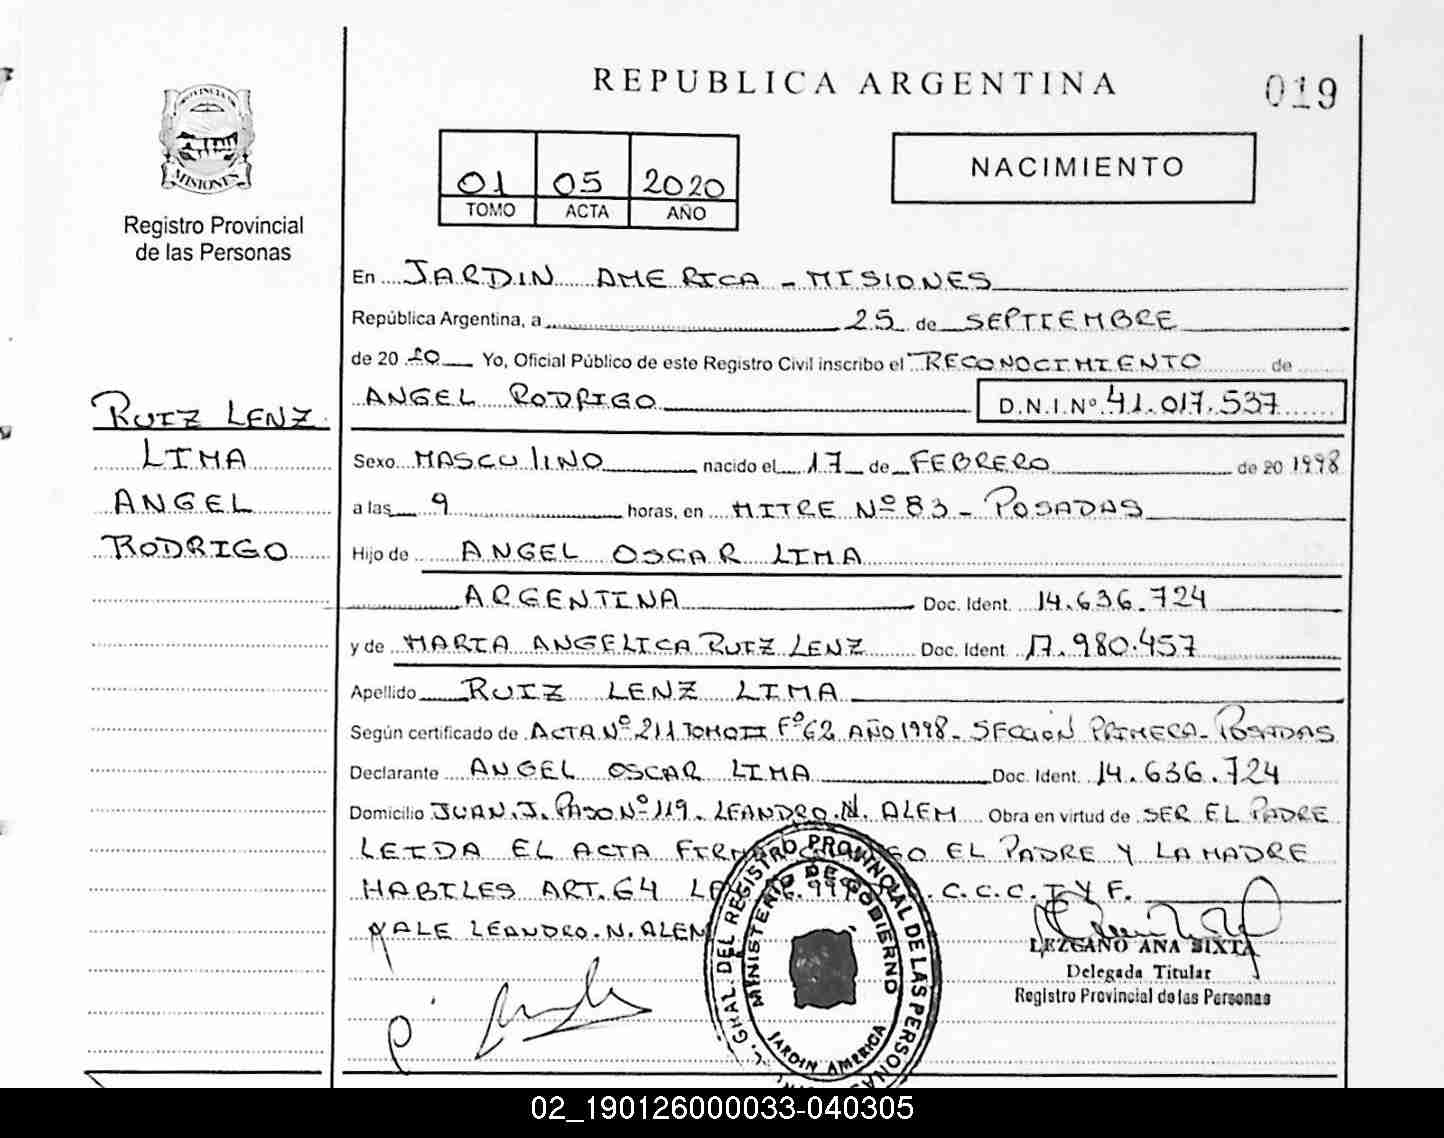 REPUBLICA ARGENTINA
019
PROVINCIA DE
MISIONES
Registro Provincial
de las Personas
01 05 2020
TOMO ACTA AÑO
NACIMIENTO
En JARDIN AMERICA - MISIONES
República Argentina, a 25 de SEPTIEMBRE
de 20 20 Yo, Oficial Público de este Registro Civil inscribo el RECONOCIMIENTO de
ANGEL RODRIGO D.N.I.Nº 41.017.537
RUIZ LENZ
LIMA
ANGEL
RODRIGO
Sexo MASCULINO nacido el 17 de FEBRERO de 20 1998
a las 9 horas, en MITRE Nº 83 - POSADAS
Hijo de ANGEL OSCAR LIMA
ARGENTINA Doc. Ident. 14.636.724
y de MARIA ANGELICA RUIZ LENZ Doc. Ident 17.980.457
Apellido RUIZ LENZ LIMA
Según certificado de ACTA Nº 211 TOMO II Fº 62 AÑO 1998 - SECCION PRIMERA - POSADAS
Declarante ANGEL OSCAR LIMA Doc. Ident. 14.636.724
Domicilio JUAN. J. PASO Nº 119. LEANDRO. N. ALEM Obra en virtud de SER EL PADRE
LEIDA EL ACTA EL PADRE Y LA MADRE
HABILES ART. 64 C.C.C. I Y F.
VALE LEANDRO. N. ALEM
LEZCANO ANA SIXTA
Delegada Titular
Registro Provincial de las Personas
GRAL DEL REGISTRO PROVINCIAL DE LAS PERSONAS
MINISTERIO DE GOBIERNO
JARDIN AMERICA
02_190126000033-040305